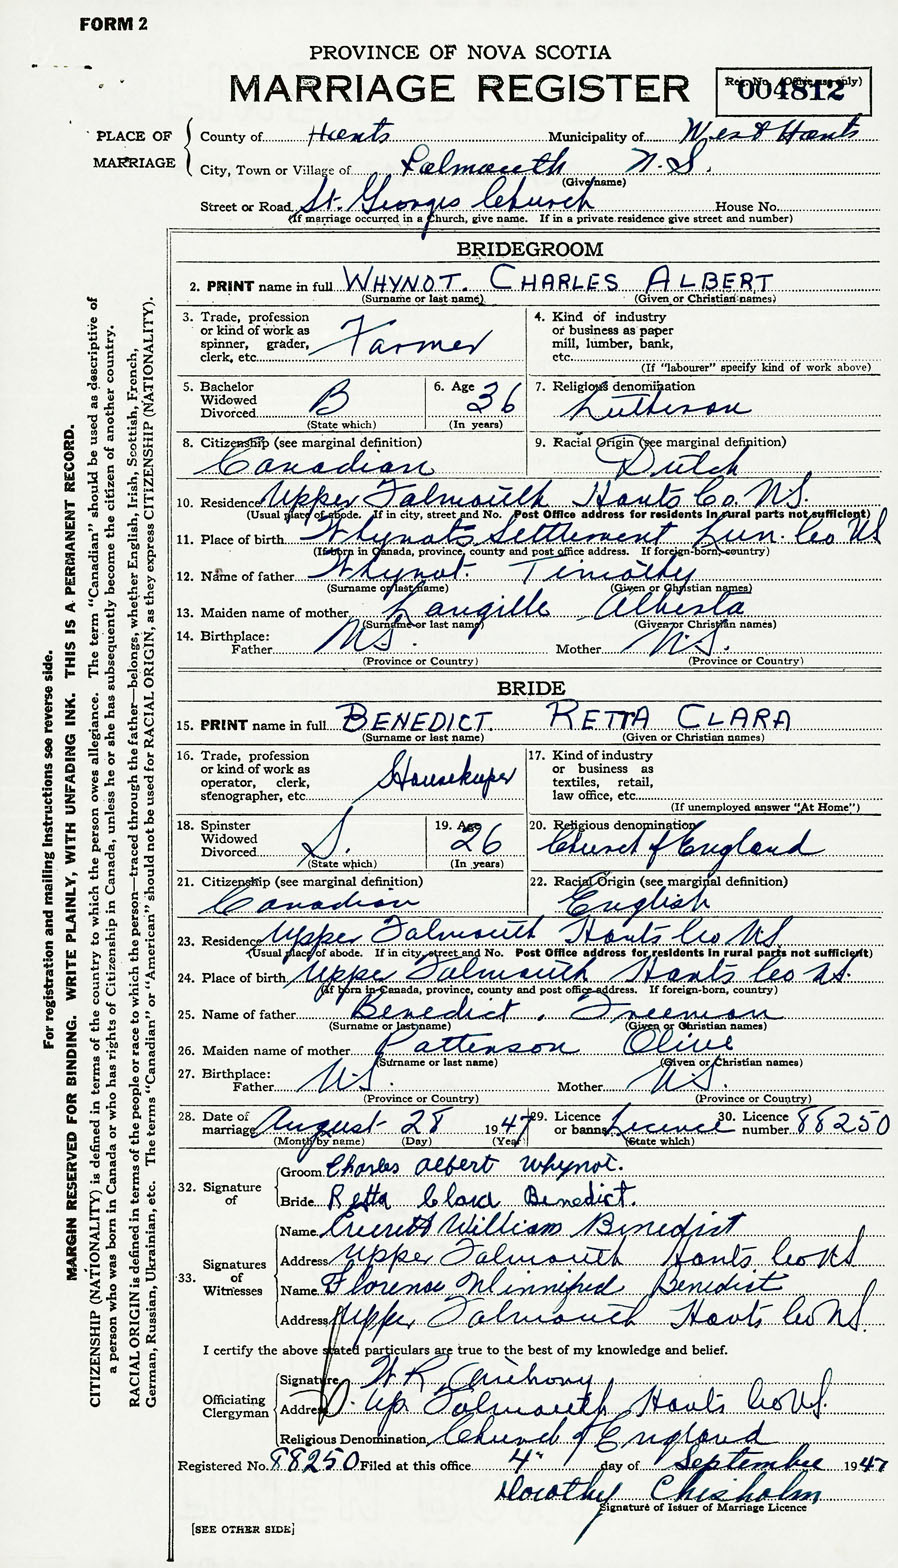 FORM 2
PROVINCE OF NOVA SCOTIA
MARRIAGE REGISTER
Reg. No. (Office use only)
004812
PLACE OF MARRIAGE
County of Hants Municipality of West Hants
City, Town or Village of Falmouth N.S.
(Give name)
Street or Road St. Georges Church House No.
(If marriage occurred in a Church, give name. If in a private residence give street and number)
BRIDEGROOM
2. PRINT name in full WHYNOT. CHARLES ALBERT
(Surname or last name) (Given or Christian names)
3. Trade, profession or kind of work as spinner, grader, clerk, etc. Farmer
4. Kind of industry or business as paper mill, lumber, bank, etc.
(If "labourer" specify kind of work above)
5. Bachelor Widowed Divorced B (State which)
6. Age 36 (In years)
7. Religious denomination Lutheran
8. Citizenship (see marginal definition) Canadian
9. Racial Origin (see marginal definition) Dutch
10. Residence Upper Falmouth Hants Co. N.S.
(Usual place of abode. If in city, street and No. Post Office address for residents in rural parts not sufficient)
11. Place of birth Whynots Settlement Lun. Co NS
(If born in Canada, province, county and post office address. If foreign-born, country)
12. Name of father Whynot. Timothy
(Surname or last name) (Given or Christian names)
13. Maiden name of mother Langille Alberta
(Surname or last name) (Given or Christian names)
14. Birthplace:
Father N.S. Mother N.S.
(Province or Country) (Province or Country)
BRIDE
15. PRINT name in full BENEDICT. RETTA CLARA
(Surname or last name) (Given or Christian names)
16. Trade, profession or kind of work as operator, clerk, stenographer, etc. Housekeeper
17. Kind of industry or business as textiles, retail, law office, etc.
(If unemployed answer "At Home")
18. Spinster Widowed Divorced S. (State which)
19. Age 26 (In years)
20. Religious denomination Church of England
21. Citizenship (see marginal definition) Canadian
22. Racial Origin (see marginal definition) English
23. Residence Upper Falmouth Hants Co NS
(Usual place of abode. If in city, street and No. Post Office address for residents in rural parts not sufficient)
24. Place of birth Upper Falmouth Hants Co NS.
(If born in Canada, province, county and post office address. If foreign-born, country)
25. Name of father Benedict. Freeman
(Surname or last name) (Given or Christian names)
26. Maiden name of mother Patterson Olive
(Surname or last name) (Given or Christian names)
27. Birthplace:
Father N.S. Mother N.S.
(Province or Country) (Province or Country)
28. Date of marriage August 28 1947
(Month by name) (Day) (Year)
29. Licence or banns Licence (State which)
30. Licence number 88250
32. Signature of
Groom Charles Albert Whynot.
Bride Retta Clara Benedict.
33. Signatures of Witnesses
Name Everett William Benedict
Address Upper Falmouth Hants Co NS
Name Florence Winnifred Benedict
Address Upper Falmouth Hants Co NS.
I certify the above stated particulars are true to the best of my knowledge and belief.
Officiating Clergyman
Signature W R Anthony
Address Up. Falmouth Hants Co NS.
Religious Denomination Church of England
Registered No. 88250 Filed at this office 4" day of September 1947
Dorothy Chisholm
Signature of Issuer of Marriage Licence
[SEE OTHER SIDE]
For registration and mailing instructions see reverse side.
MARGIN RESERVED FOR BINDING. WRITE PLAINLY, WITH UNFADING INK. THIS IS A PERMANENT RECORD.
CITIZENSHIP (NATIONALITY) is defined in terms of the country to which the person owes allegiance. The term "Canadian" should be used as descriptive of
a person who was born in Canada or who has rights of Citizenship in Canada, unless he or she has subsequently become the citizen of another country.
RACIAL ORIGIN is defined in terms of the people or race to which the person—traced through the father—belongs, whether English, Irish, Scottish, French,
German, Russian, Ukrainian, etc. The terms "Canadian" or "American" should not be used for RACIAL ORIGIN, as they express CITIZENSHIP (NATIONALITY).